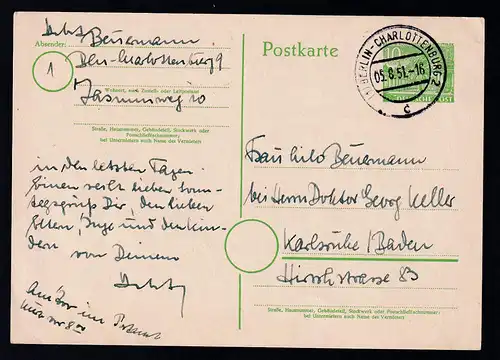 Absender:
Beuermann
Bln-Charlottenburg 9
1
Jasminweg 10
Wohnort, auch Zustell- oder Leitpostamt
Straße, Hausnummer, Gebäudeteil, Stockwerk oder
Postschließfachnummer;
bei Untermietern auch Name des Vermieters
in den letzten Tagen.
Einen sehr lieben Sonn-
tagsgruß Dir, den lieben
Eltern, Inge und den Kin-
dern von Deinem
Postkarte
BERLIN-CHARLOTTENBURG 2
05.8.51.-16
c
10
DEUTSCHE POST
Frau Lilo Beuermann
bei Herrn Doktor Georg Keller
Karlsruhe / Baden
Hirschstrasse 83
Straße, Hausnummer, Gebäudeteil, Stockwerk oder Postschließfachnummer;
bei Untermietern auch Name des Vermieters